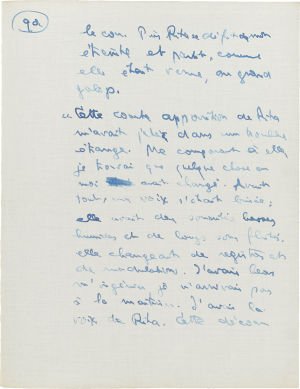 90
le cou. Puis Rita se défit de mon
étreinte et partit, comme
elle était venue, au grand
galop.
" Cette courte apparition de Rita
m'avait jetée dans un trouble
étrange. Me comparant à elle
je trouvai que quelque chose en
moi avait changé. Avant
tout, ma voix s'était brisée :
elle avait des sonorités basses,
et de longs sons flûtés,
elle changeait de registre et
de modulation. J'avais beau
m'ingénier, je n'arrivais pas
à la maîtriser. J'avais la
voix de Rita. Cette